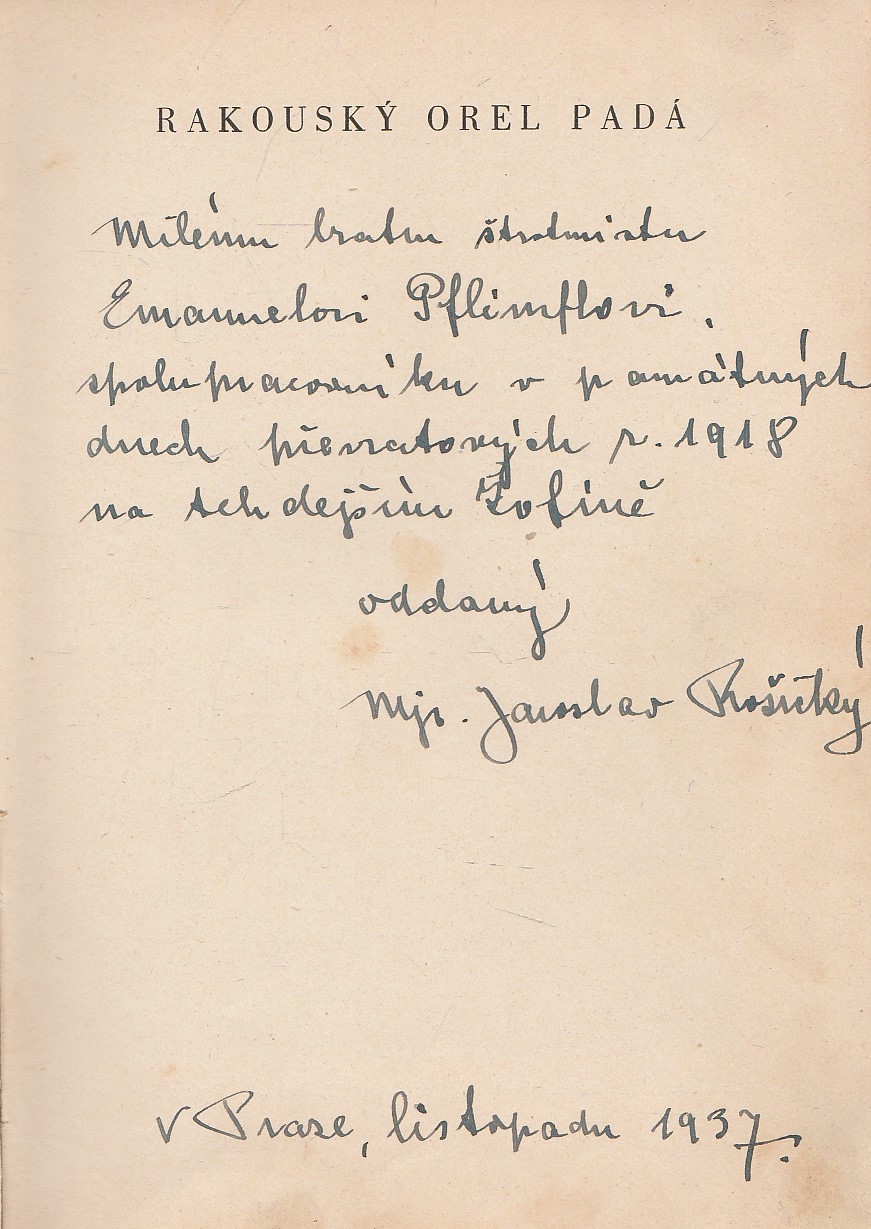 RAKOUSKÝ OREL PADÁ
Milému bratru štrobmistru
Emanuelovi Pflimflovi,
spolupracovníku v památných
dnech převratových r. 1918
na tehdejším Žofíně
oddaný
Mjr. Jaroslav Rošický
V Praze, listopadu 1937.